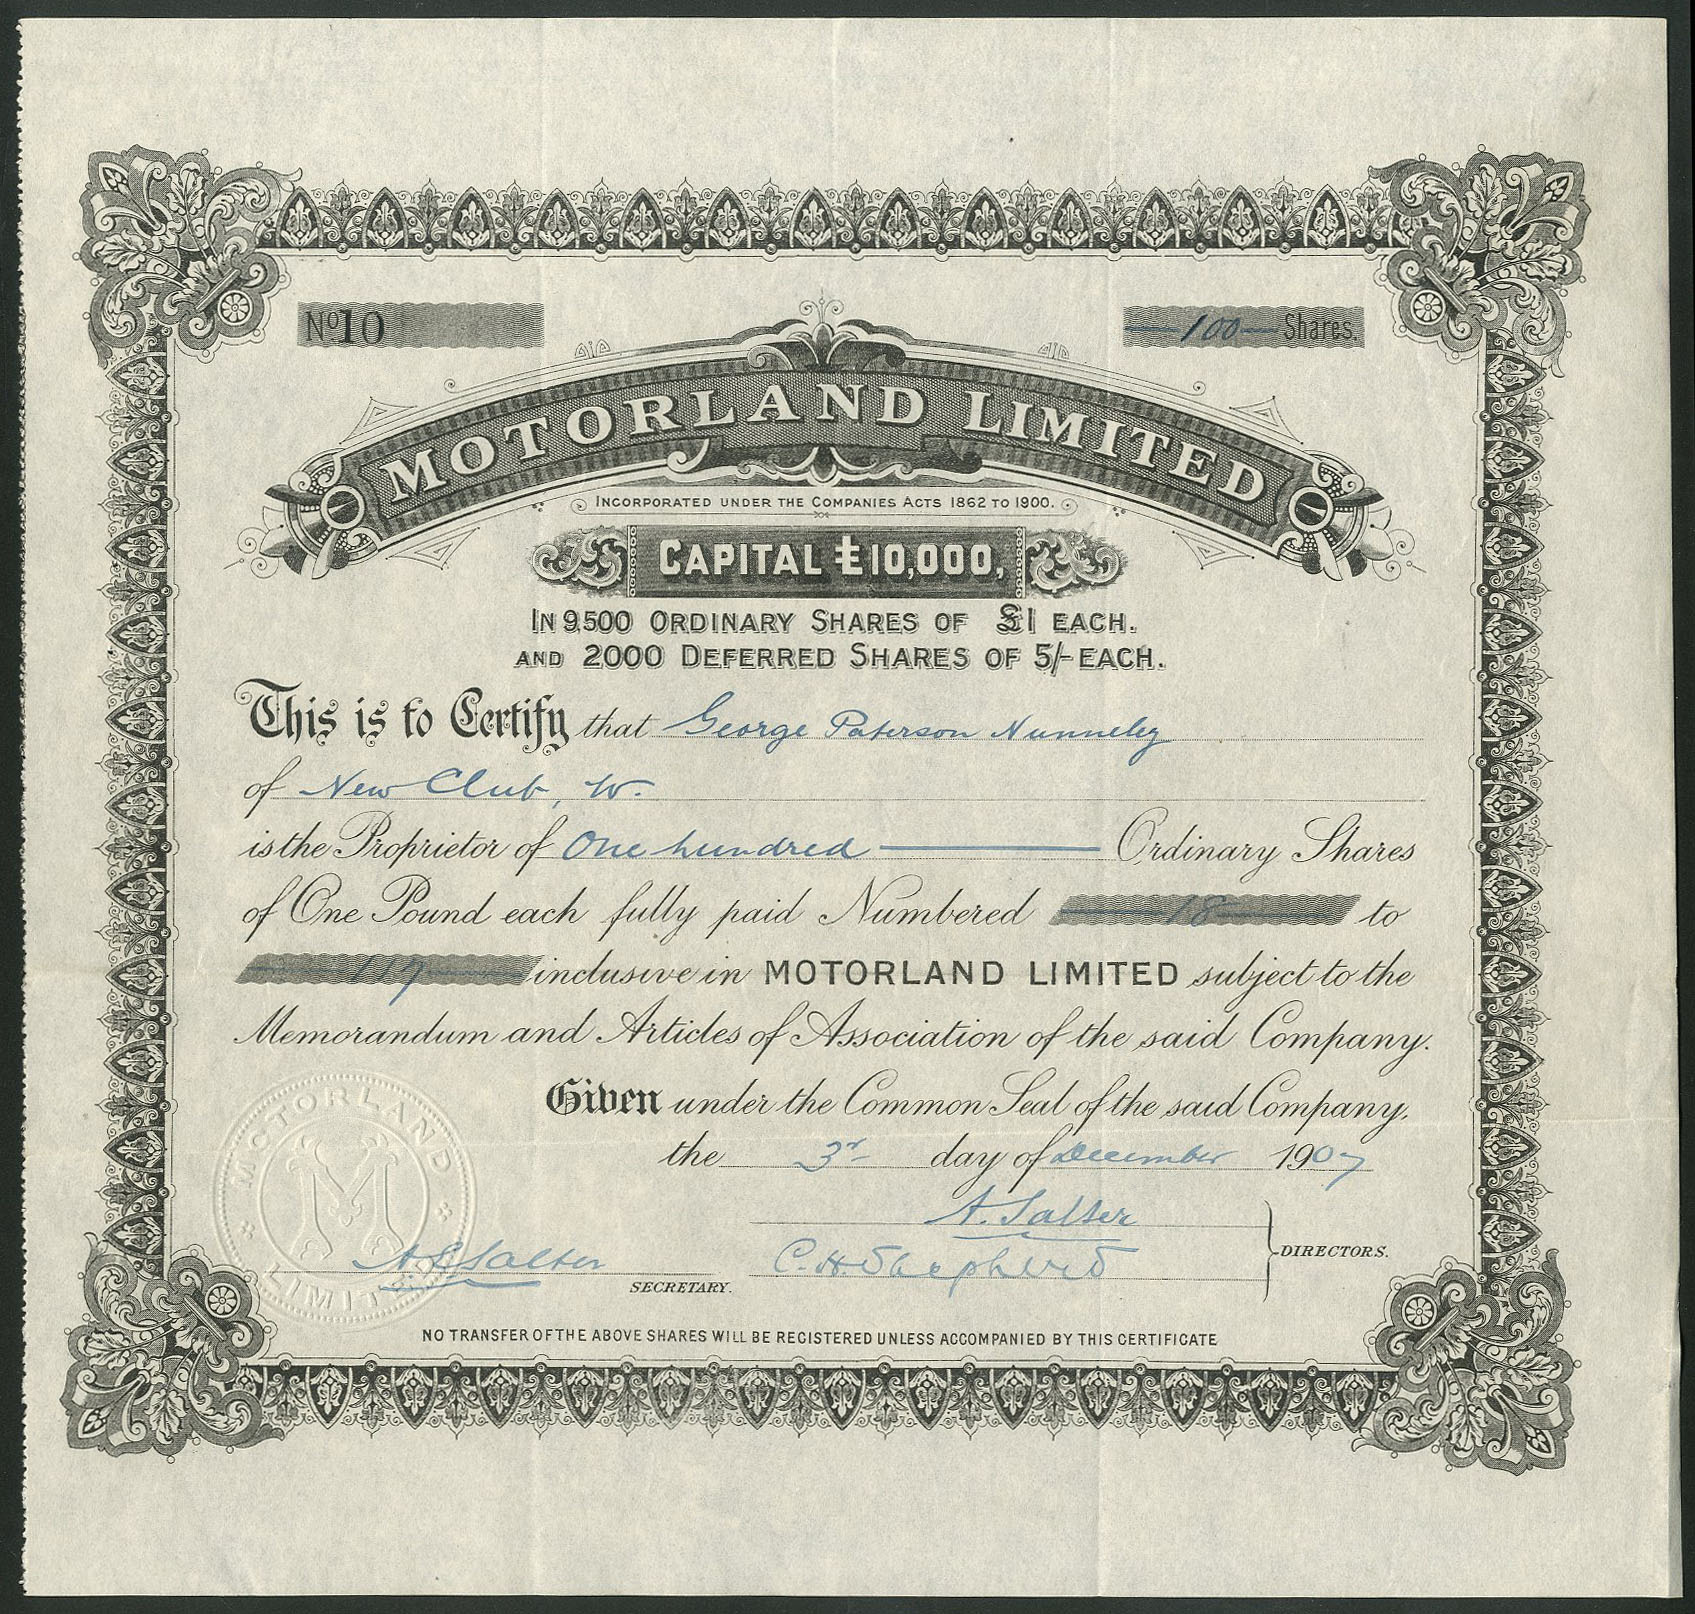 No 10
100 Shares.
MOTORLAND LIMITED
INCORPORATED UNDER THE COMPANIES ACTS 1862 TO 1900.
CAPITAL £10,000,
IN 9,500 ORDINARY SHARES OF £1 EACH.
AND 2000 DEFERRED SHARES OF 5/- EACH.
This is to Certify that George Paterson Nunneley
of New Club, W.
is the Proprietor of One hundred Ordinary Shares
of One Pound each fully paid Numbered 18 to
117 inclusive in MOTORLAND LIMITED subject to the
Memorandum and Articles of Association of the said Company.
Given under the Common Seal of the said Company,
the 3rd day of December 1907
A. Salter
A. E. Salter C. H. Shepherd DIRECTORS.
SECRETARY.
MOTORLAND
M
LIMITED
NO TRANSFER OF THE ABOVE SHARES WILL BE REGISTERED UNLESS ACCOMPANIED BY THIS CERTIFICATE